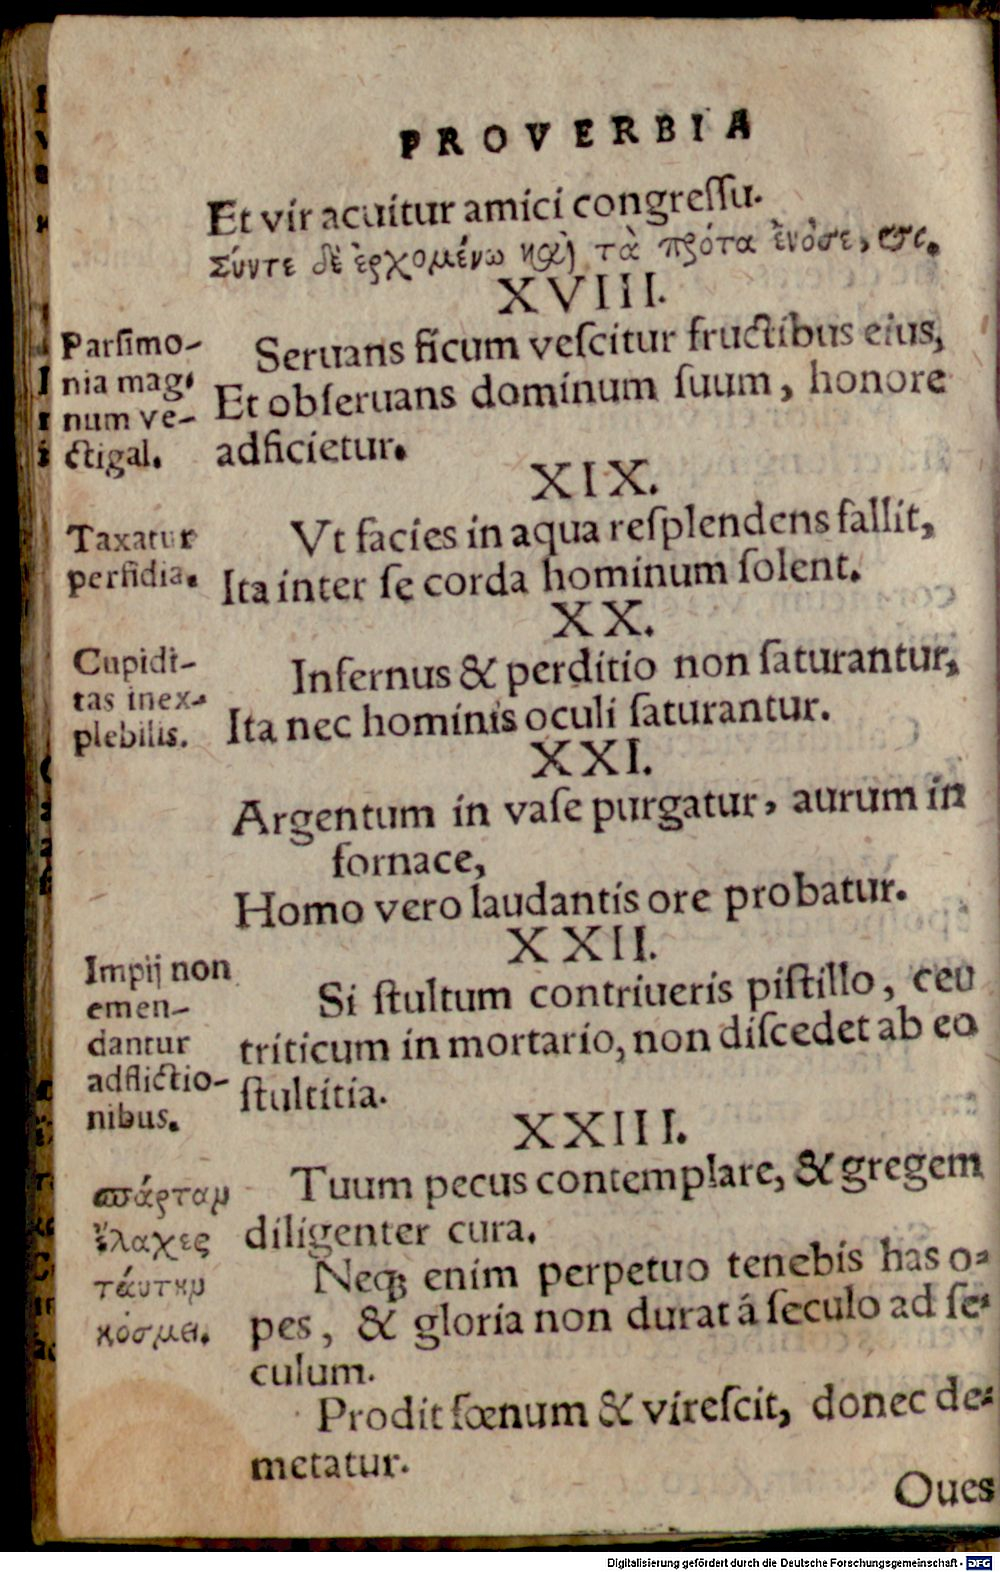 PROVERBIA
Et vir acuitur amici congreſſu.
Σύντε δὲ ἐρχομένω καὶ τὰ πρότα ἐνόσε,
XVIII.
Parſimo-
nia mag-
num ve-
ctigal.
Seruans ficum veſcitur fructibus eius,
Et obſeruans dominum ſuum, honore
adficietur.
XIX.
Taxatur
perfidia.
Vt facies in aqua reſplendens fallit,
Ita inter ſe corda hominum ſolent.
XX.
Cupidi-
tas inex-
plebilis.
Infernus & perditio non ſaturantur,
Ita nec hominis oculi ſaturantur.
XXI.
Argentum in vaſe purgatur, aurum in
fornace,
Homo vero laudantis ore probatur.
XXII.
Impij non
emen-
dantur
adflictio-
nibus.
Si ſtultum contriueris piſtillo, ceu
triticum in mortario, non diſcedet ab eo
ſtultitia.
XXIII.
σπάρταμ
ἔλαχες
τάυτημ
κόσμει.
Tuum pecus contemplare, & gregem
diligenter cura.
Neq; enim perpetuo tenebis has o-
pes, & gloria non durat á ſeculo ad ſe-
culum.
Prodit fœnum & vireſcit, donec de-
metatur.
Oues
Digitalisierung gefördert durch die Deutsche Forschungsgemeinschaft - DFG